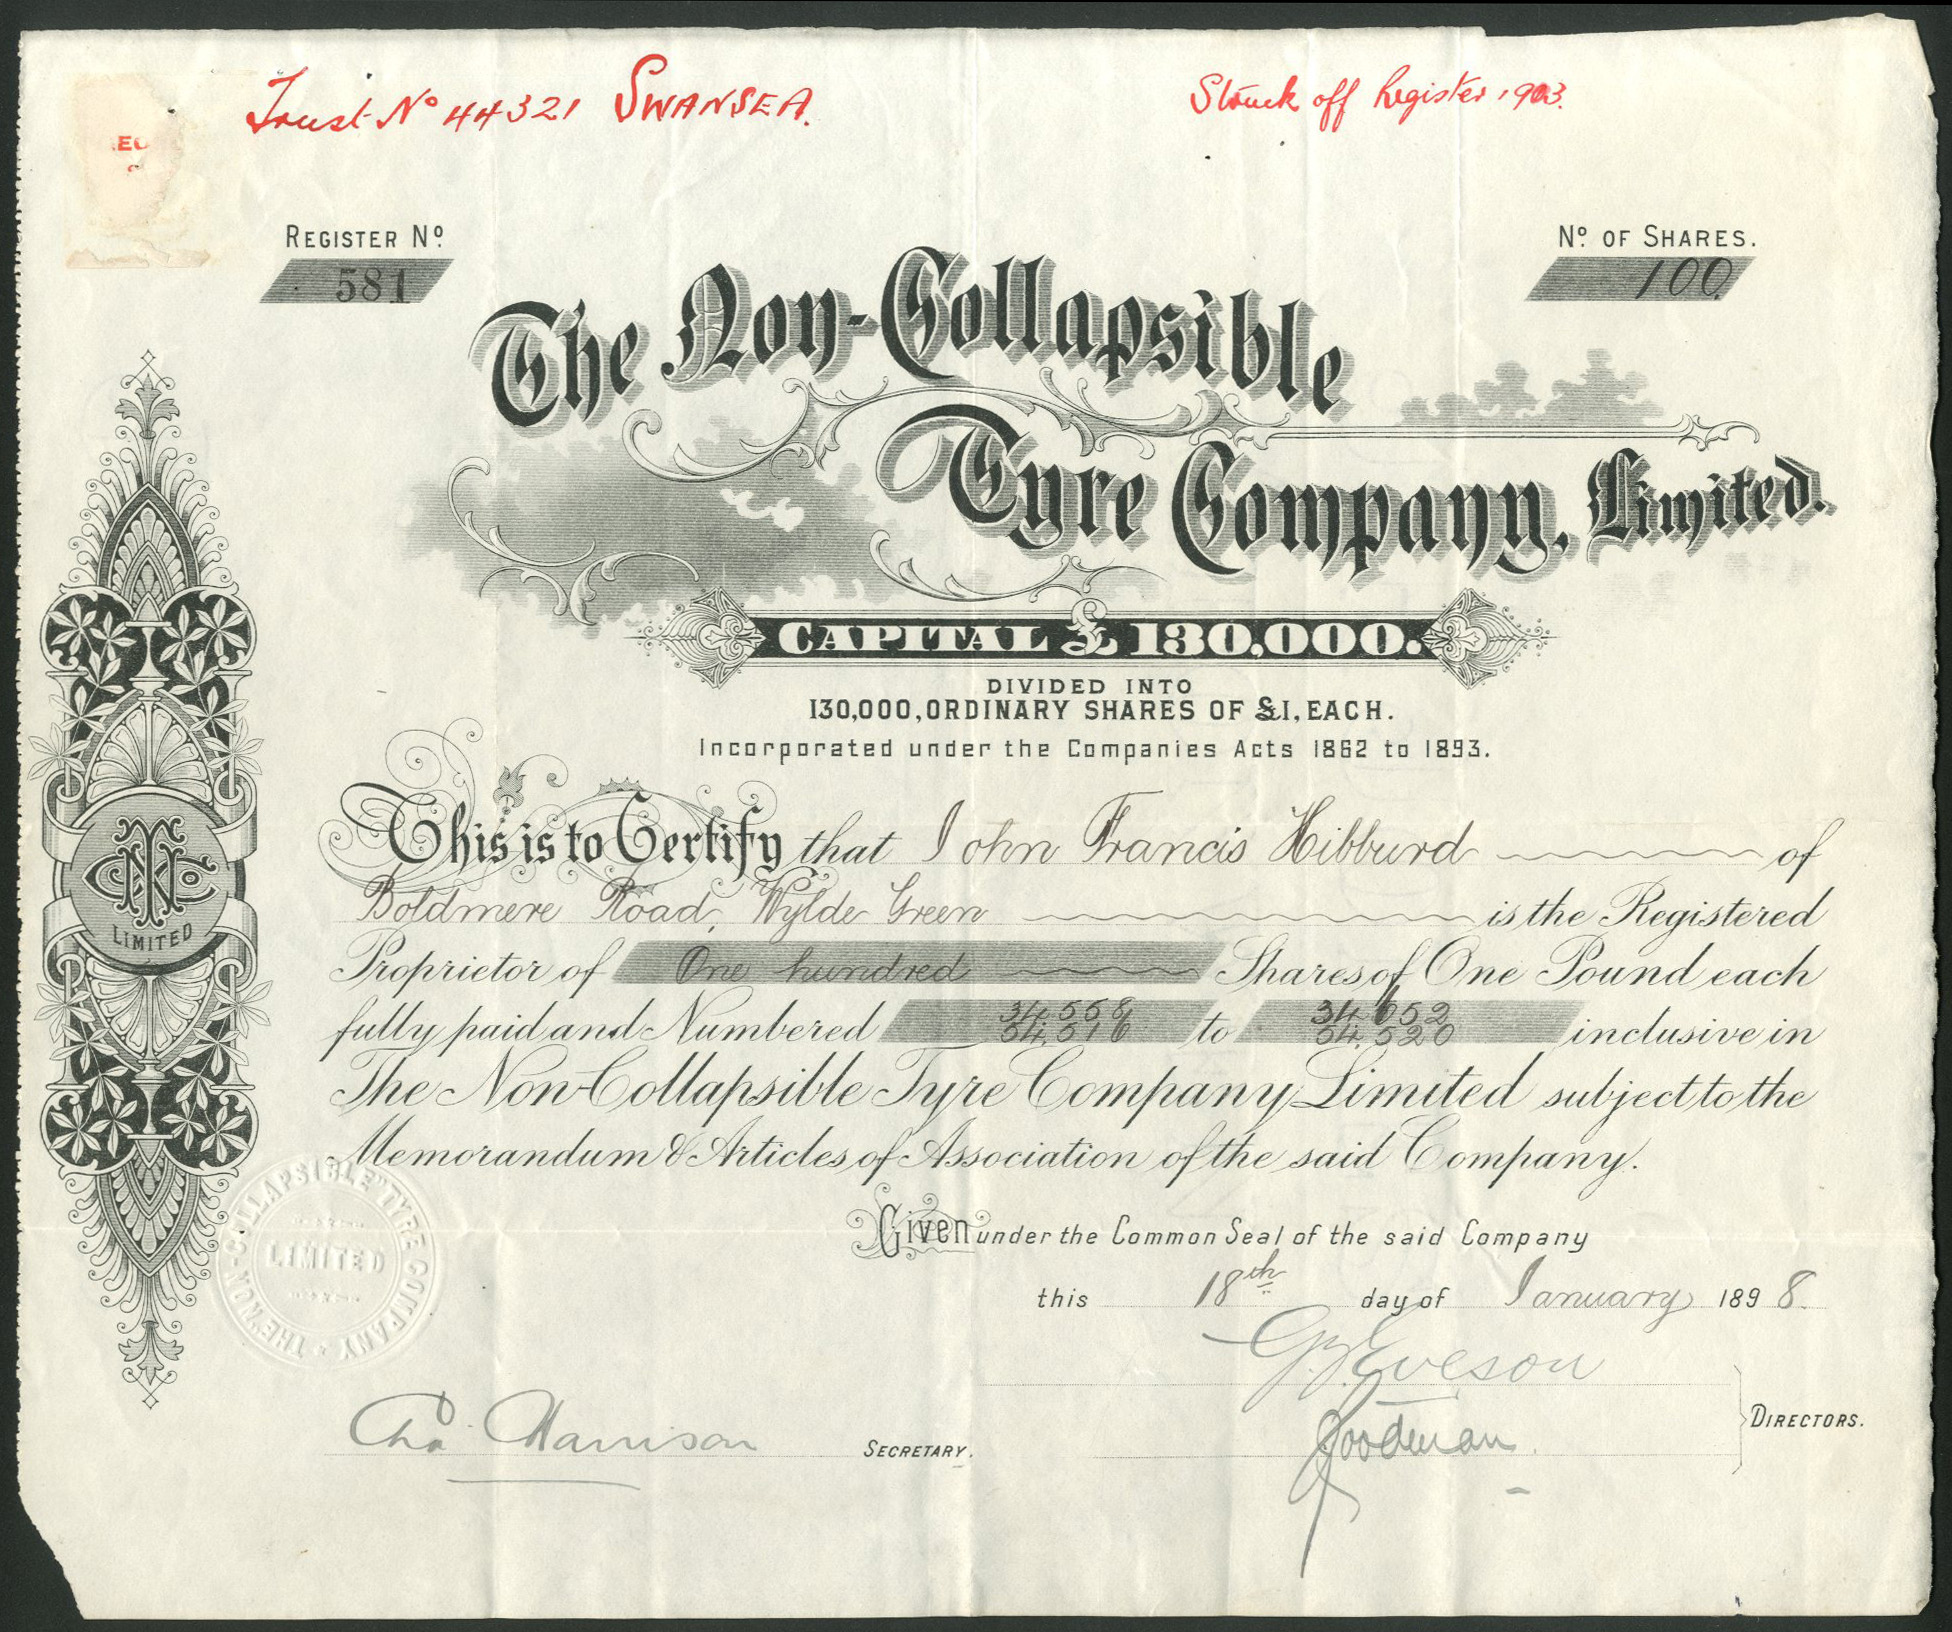 Trust No 44321 SWANSEA.
Struck off Register 1903.
REGISTER No.
581
No. OF SHARES.
100
The Non-Collapsible
Tyre Company, Limited.
CAPITAL £130,000.
DIVIDED INTO
130,000, ORDINARY SHARES OF £1, EACH.
Incorporated under the Companies Acts 1862 to 1893.
This is to Certify that John Francis Hibburd of
Boldmere Road, Wylde Green is the Registered
Proprietor of One hundred Shares of One Pound each
fully paid and Numbered 34,568 to 34,652 inclusive in
54,516 54,520
The Non-Collapsible Tyre Company, Limited subject to the
Memorandum & Articles of Association of the said Company.
Given under the Common Seal of the said Company
this 18th day of January 1898.
Eveson
Goodman
DIRECTORS.
Chs. Harrison SECRETARY.
LIMITED
THE "NON-COLLAPSIBLE" TYRE COMPANY
LIMITED